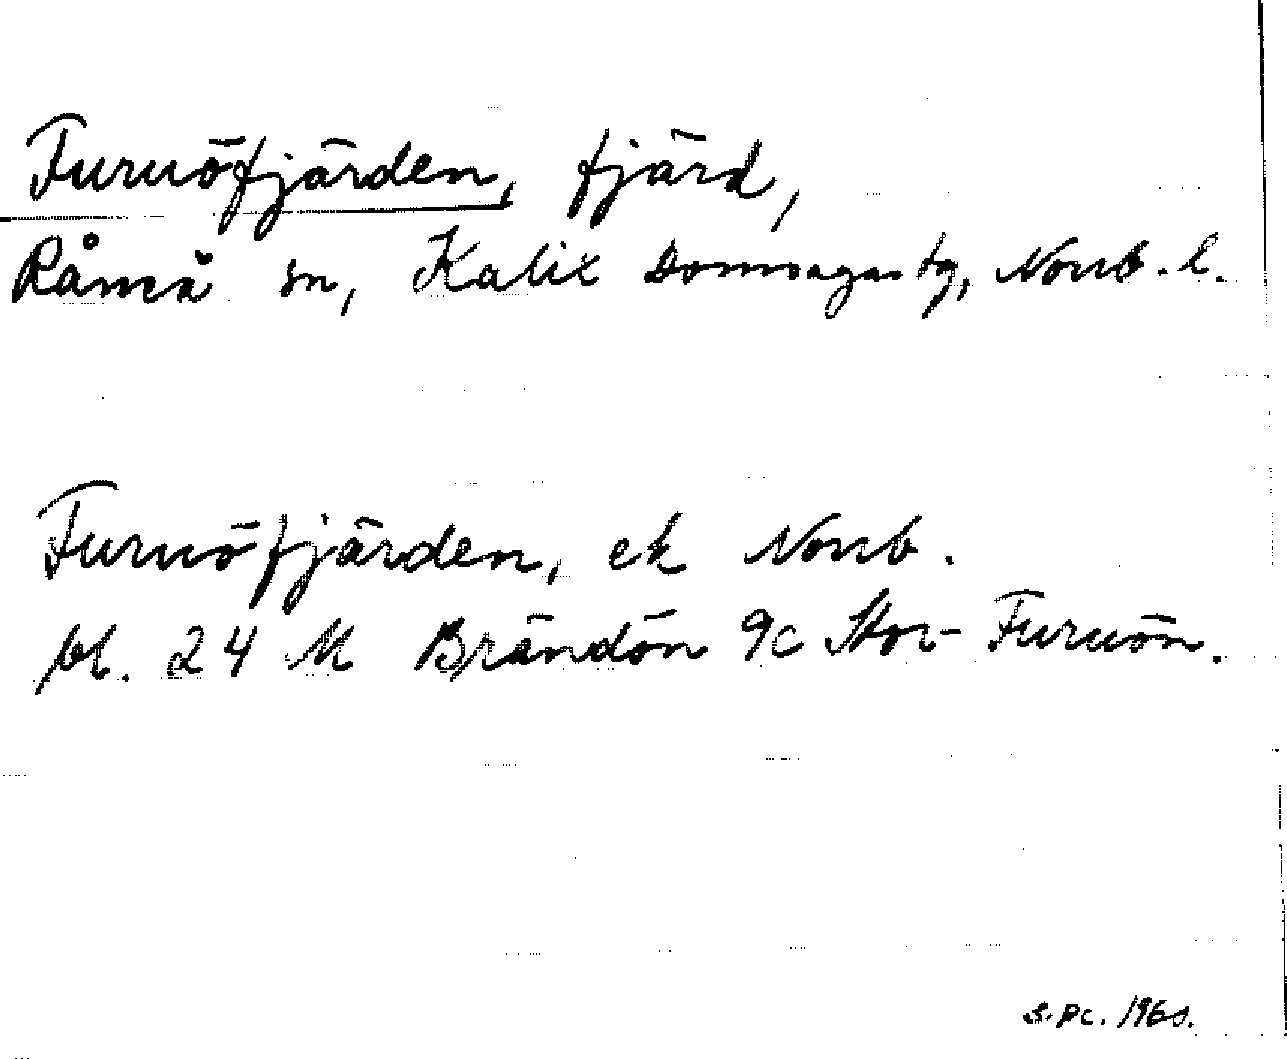 Furuöfjärden, fjärd,
Råneå sn, Kalix domsagas tg, Norrb. l.
Furuöfjärden, ek Norrb.
bl. 24 M Brändön 9c Stor-Furuön.